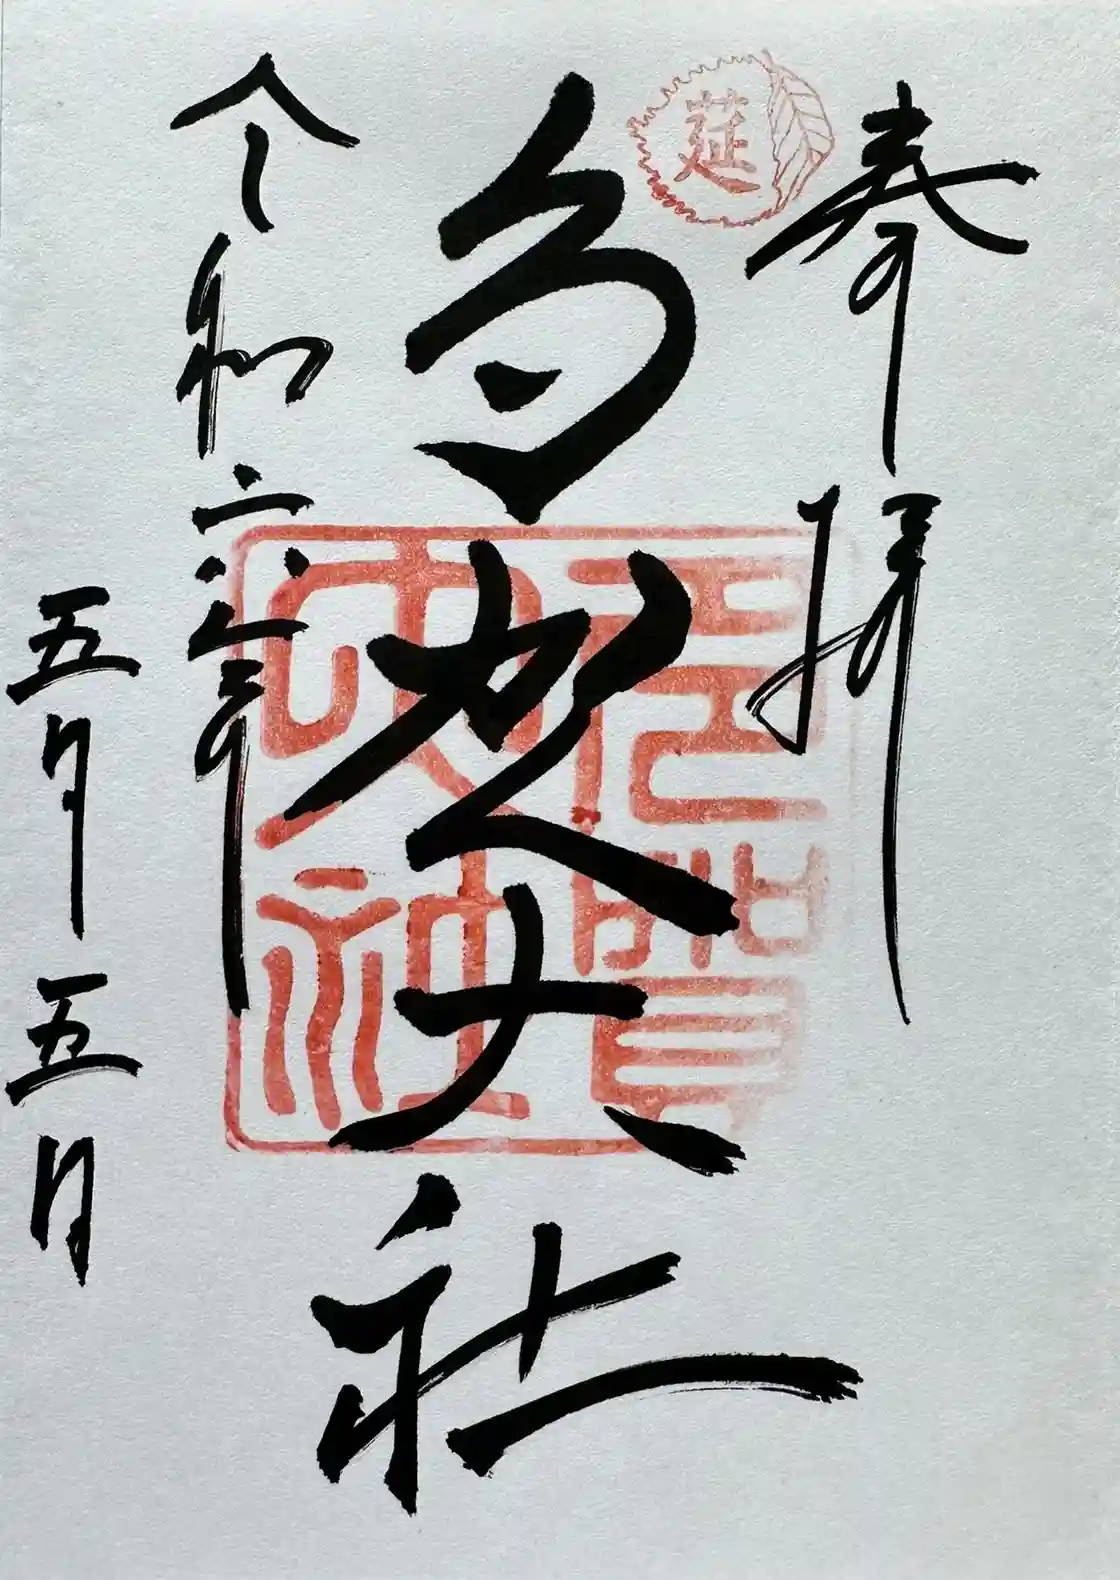 奉拝
莚
多賀大社
多賀大社
令和六年
五月五日